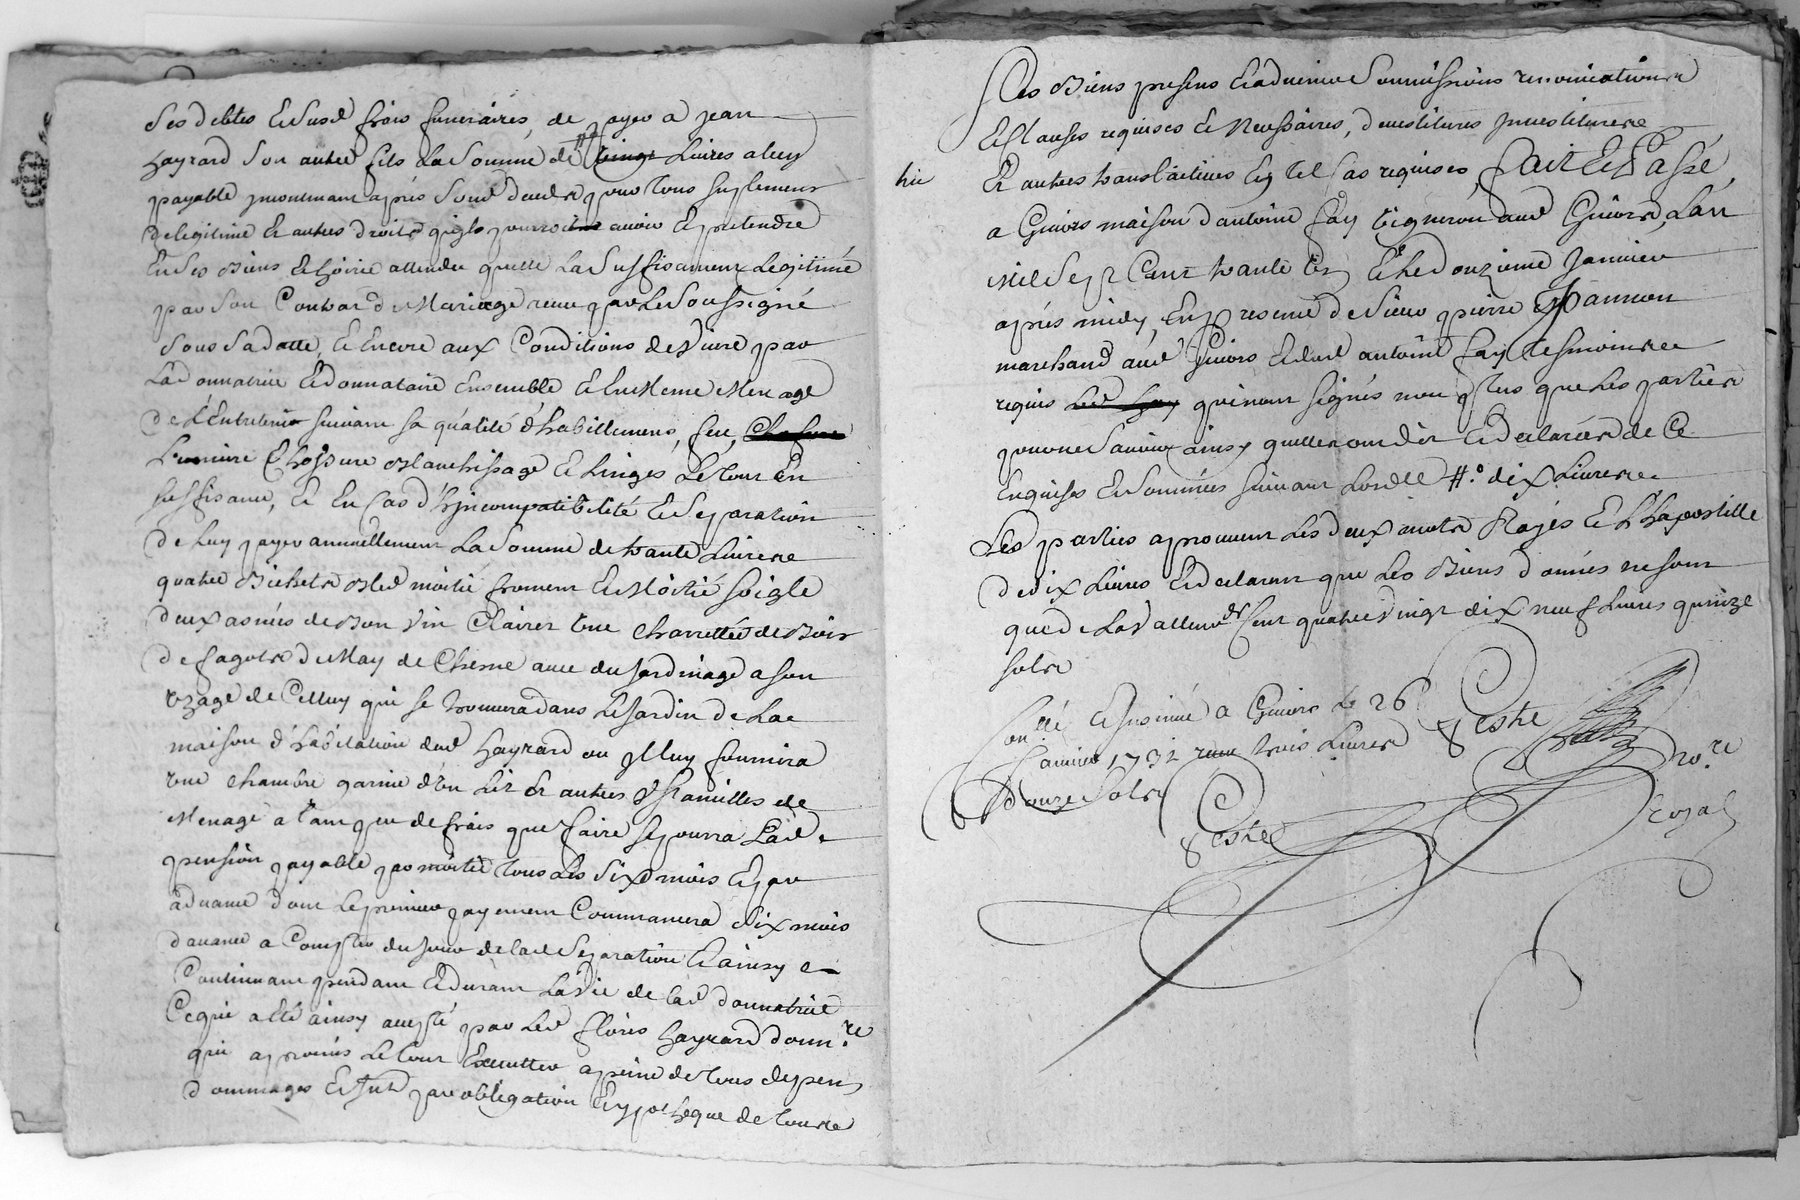 Ses debtes et susd frais funeraires, de payer a jean
hayrard son autre fils la somme de livres a luy
payable jncontinant aprés son deceds pour tous suplement
de legitime et autres droits quil pourroit avoir et pretendre
en ses biens et hoirie attendu quelle la suffisament legitimé
par son Contrat de Mariage receu par le soussigné
sous sa datte, et encore aux Conditions de vivre par
la donnatrice et donnataire ensemble et en meme menage
de l'entretenir suivant sa qualité d'habillements, feu,
Lumiere Chossure blanchissage et linges le tout en
suffisance, et en cas d'hjncompatibilité et separation
de luy payer annuellement la somme de trante livres
quatre bichets bled moitié froment et moitié soigle
deux asnées de bon vin Clairet une charrettée de bois
de fagots de May de Chesne avec du jardinage a son
uzage de Celluy qui se trouvera dans le jardin de la
maison d'habitation dud hayrard ou jl luy fournira
une chambre garnie d'un lit et autres ustancilles de
menage a tant peu de frais que faire se pourra lad
pension payable par moitié tous les six mois et par
advance dont le premier payement Commancera six mois
d'avance a Compter du jour de lad separation et ainsy
Continuant pendant et durant la vie de lad donnatrice
Ce qui a eté ainsy accepté par led hayrard donn.re
qui a promis le tout executter a peine de tous depens
dommages et jnt par obligation et ypotheque de tous
Ses biens presens et advenir soumissions renonciations
et clauses requises et necessaires, devestitures jnvestitures
hic
et autres translatives en tel cas requises, fait et Passé
a Givors maison d'antoine fay vigneron aud Givors, l'an
mil sept cent trante et le douzieme janvier
aprés midy, en presence de sieur pierre
marchand aud Givors et dud antoine fay tesmoins
requis qui n'ont signés non plus que les parties
pour ne sçavoir ainsy quelles ont dit et declarées de ce
enquises et sommées suivant l'ordce #.o dix livres
Les parties aprouvent les deux mots Rayés et l'hapostille
de dix livres et declarent que les biens donnés ne sont
que de la valleur de cent quatre vingt dix neuf livres quinze
sols
Con.llé et jnsinué a Givors le 26
janvier 1732 receu trois livres
douze sols
geste
geste
no.re
royal